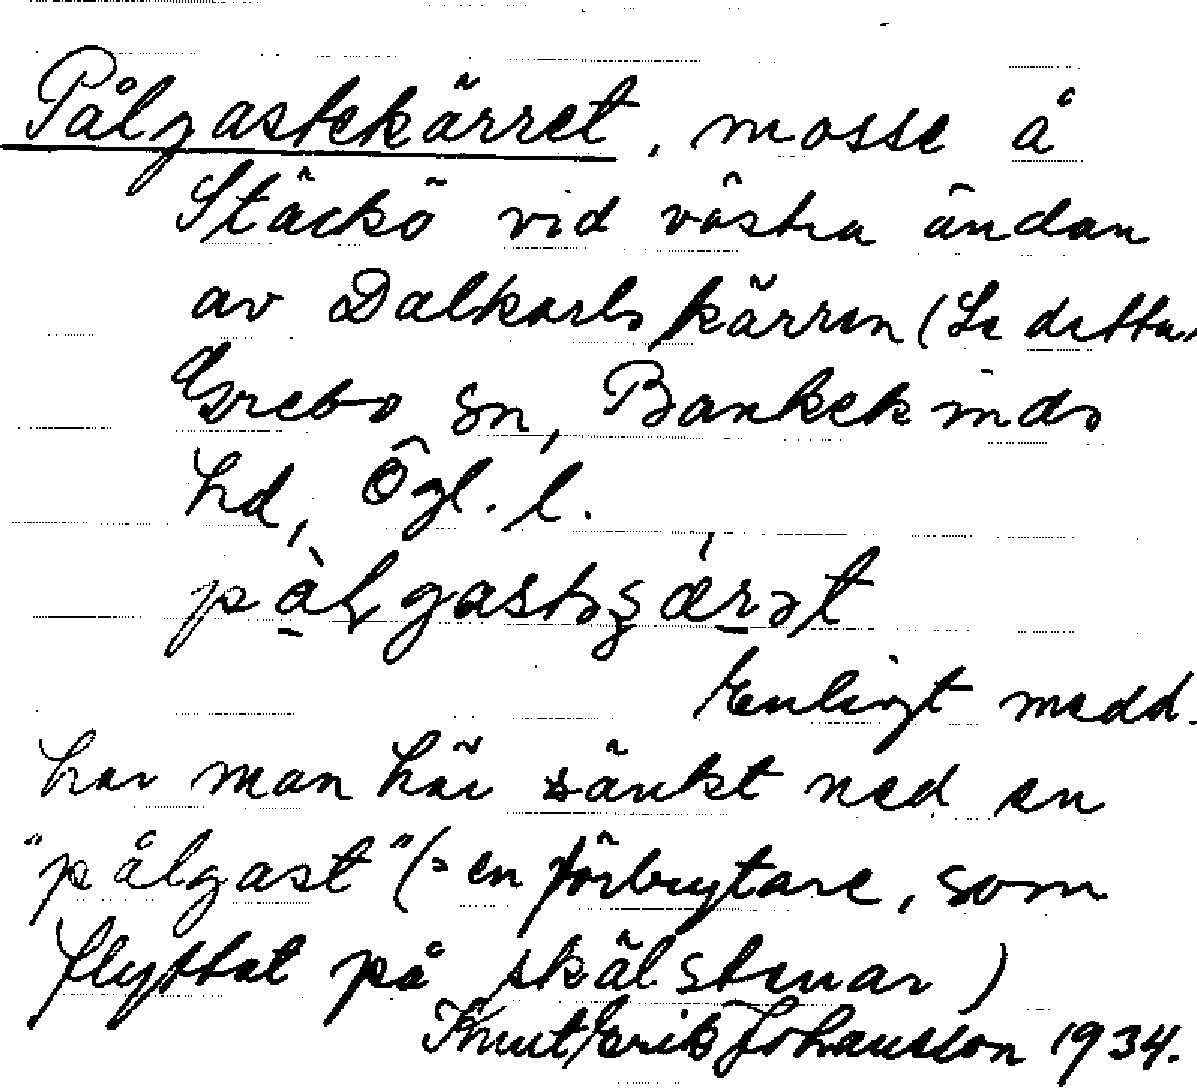 Pålgastekärret, mosse å
Stäckö vid västra ändan
av Dalkarlskärren (Se detta,
Grebo sn, Bankekinds
hd, Ögl. l.
Enligt medd.
har man här sänkt ned en
"pålgast" (= en förbrytare, som
flyttat på skälstenar)
Knut Erik Johansson 1934.